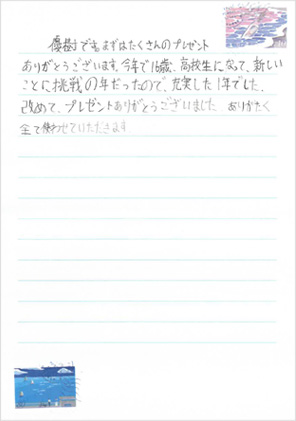 優樹です。まずはたくさんのプレゼント
ありがとうございます。今年で16歳、高校生になって、新しい
ことに挑戦の年だったので、充実した1年でした。
改めて、プレゼントありがとうございました。ありがたく
全て使わせていただきます